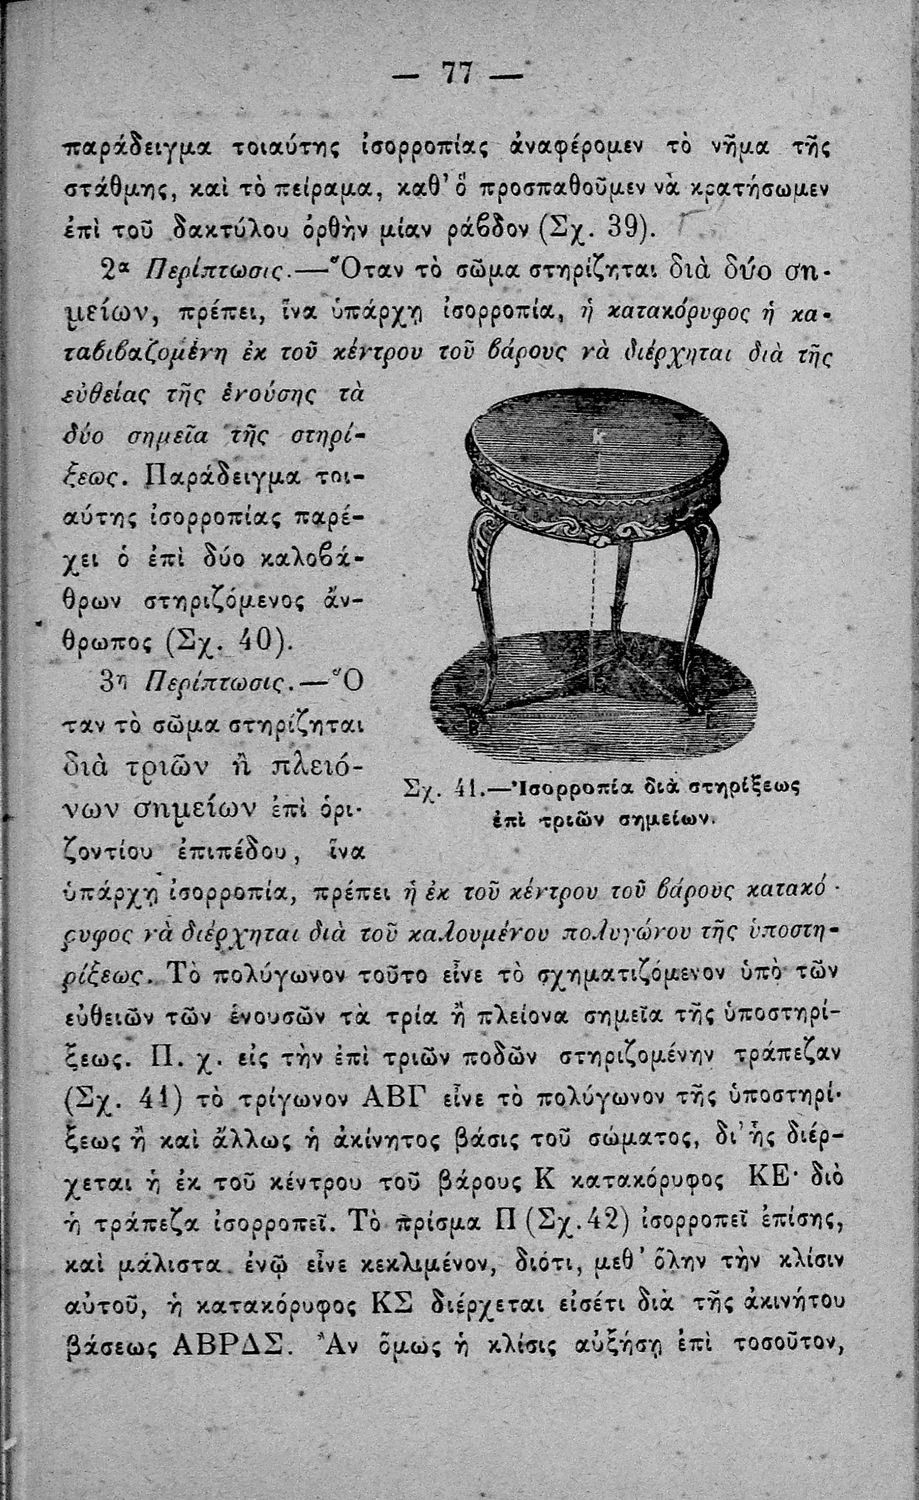 — 77 —
παράδειγμα τοιαύτης ἰσορροπίας ἀναφέρομεν τὸ νῆμα τῆς
στάθμης, καὶ τὸ πείραμα, καθ' ὃ προσπαθοῦμεν νὰ κρατήσωμεν
ἐπὶ τοῦ δακτύλου ὀρθὴν μίαν ράϐδον (Σχ. 39).
2α Περίπτωσις.—Ὅταν τὸ σῶμα στηρίζηται διὰ δύο ση-
μείων, πρέπει, ἵνα ὑπάρχῃ ἰσορροπία, ἡ κατακόρυφος ἡ κα-
ταϐιϐαζομένη ἐκ τοῦ κέντρου τοῦ βάρους νὰ διέρχηται διὰ τῆς
εὐθείας τῆς ἑνούσης τὰ
δύο σημεῖα τῆς στηρί-
ξεως. Παράδειγμα τοι-
αύτης ἰσορροπίας παρέ-
χει ὁ ἐπὶ δύο καλοϐά-
θρων στηριζόμενος ἄν-
θρωπος (Σχ. 40).
3η Περίπτωσις.—Ὅ
ταν τὸ σῶμα στηρίζηται
διὰ τριῶν ἢ πλειό-
νων σημείων ἐπὶ ὁρι-
ζοντίου ἐπιπέδου, ἵνα
k
Ε
Β
Γ
Σχ. 41.—Ἰσορροπία διὰ στηρίξεως
ἐπὶ τριῶν σημείων.
ὑπάρχῃ ἰσορροπία, πρέπει ἡ ἐκ τοῦ κέντρου τοῦ βάρους κατακό-
ρυφος νὰ διέρχηται διὰ τοῦ καλουμένου πολυγώνου τῆς ὑποστη-
ρίξεως. Τὸ πολύγωνον τοῦτο εἶνε τὸ σχηματιζόμενον ὑπὸ τῶν
εὐθειῶν τῶν ἑνουσῶν τὰ τρία ἢ πλείονα σημεῖα τῆς ὑποστηρί-
ξεως. Π. χ. εἰς τὴν ἐπὶ τριῶν ποδῶν στηριζομένην τράπεζαν
(Σχ. 41) τὸ τρίγωνον ΑΒΓ εἶνε τὸ πολύγωνον τῆς ὑποστηρί-
ξεως ἢ καὶ ἄλλως ἡ ἀκίνητος βάσις τοῦ σώματος, δι' ἧς διέρ-
χεται ἡ ἐκ τοῦ κέντρου τοῦ βάρους Κ κατακόρυφος ΚΕ· διὸ
ἡ τράπεζα ἰσορροπεῖ. Τὸ πρίσμα Π (Σχ.42) ἰσορροπεῖ ἐπίσης,
καὶ μάλιστα ἐνῷ εἶνε κεκλιμένον, διότι, μεθ' ὅλην τὴν κλίσιν
αὐτοῦ, ἡ κατακόρυφος ΚΣ διέρχεται εἰσέτι διὰ τῆς ἀκινήτου
βάσεως ΑΒΡΔΣ. Ἂν ὅμως ἡ κλίσις αὐξήσῃ ἐπὶ τοσοῦτον,